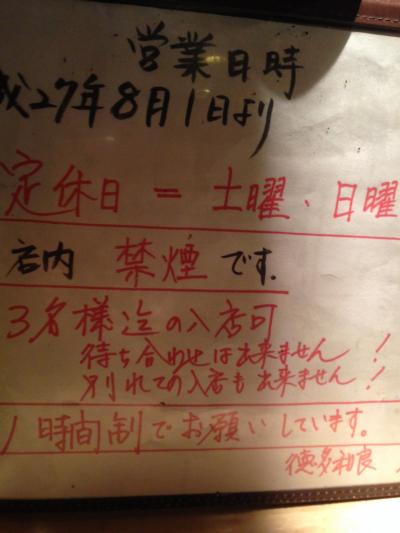 営業日時
成27年8月1日より
定休日 = 土曜、日曜
店内 禁煙です.
3名様迄の入店可
待ち合わせは出来ません!
別れての入店も出来ません!
1時間制でお願いしています。
徳多和良